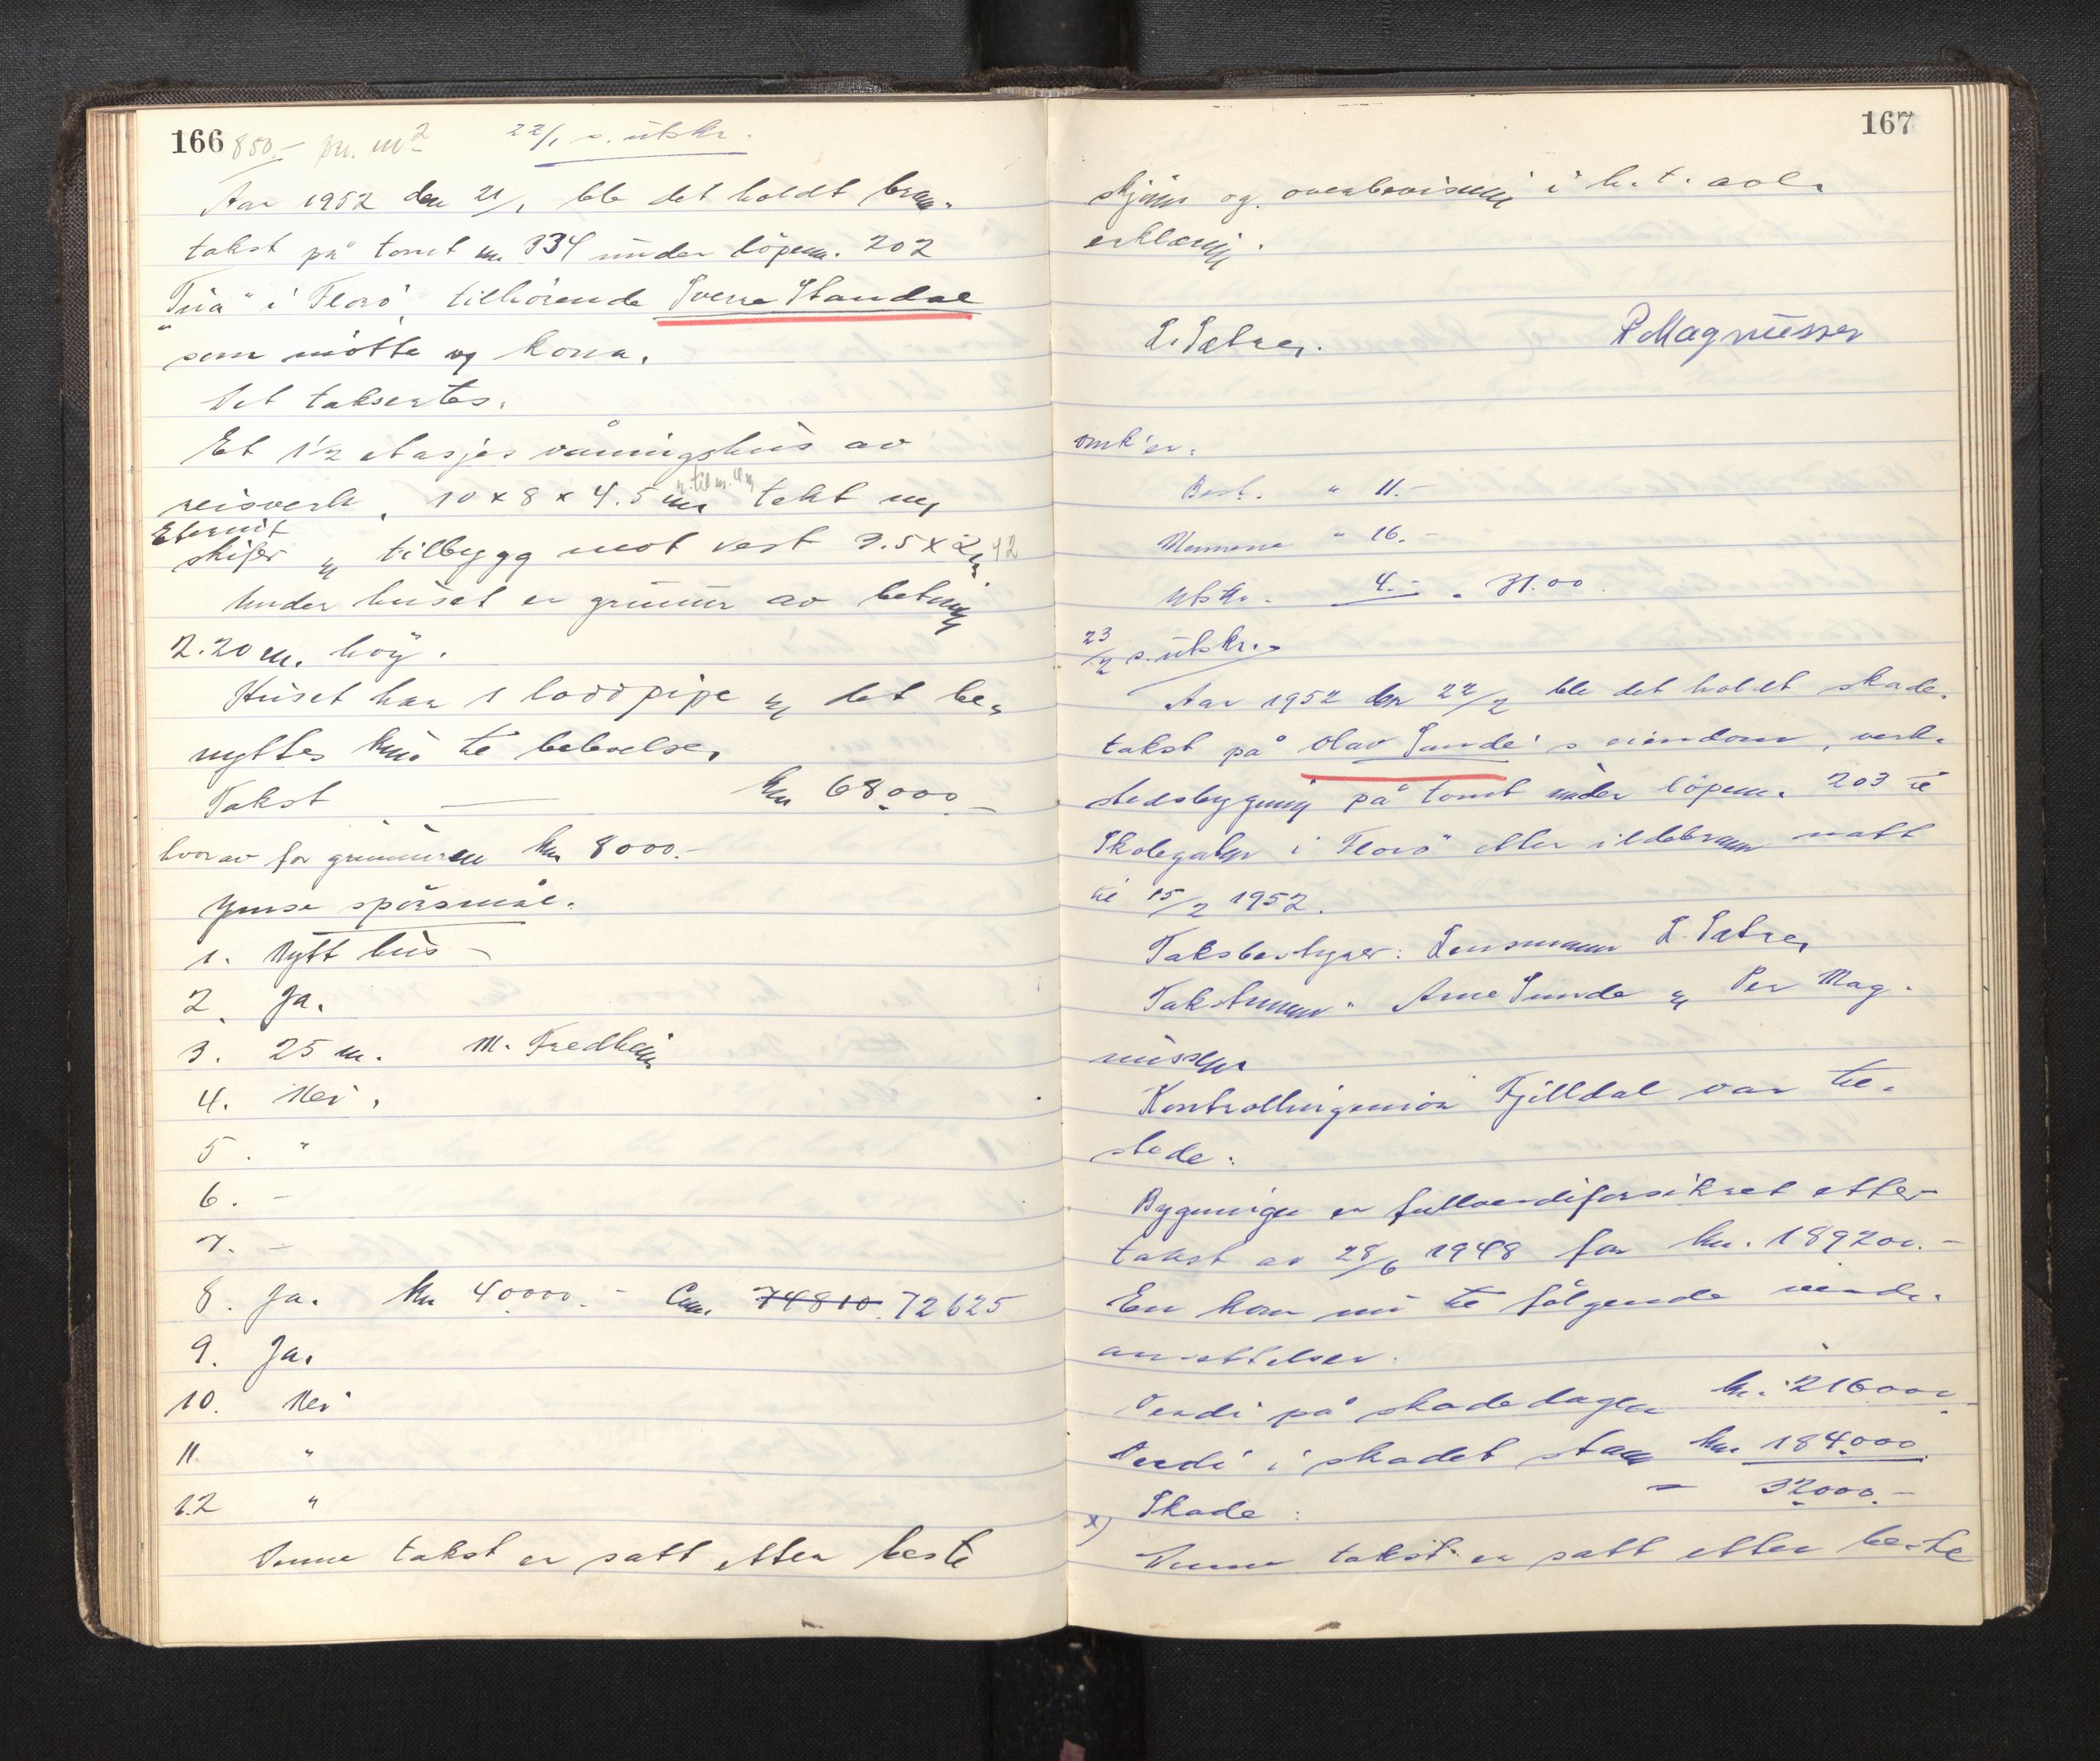 166 850.- pr. m2 22/1 s. utskr.
Aar 1952 den 21/1 ble det holdt brann-
takst på tomt nr. 334 under löpenr. 202
"Tua" i Florö, tilhörende Sverre Standal
som mötte og kona.
Det taksertes.
Et 1½ etasjes våningshus av
reisverk, 10 x 8 x 4.5 m tekt m/
Eternit
skifer og tilbygg mot vest 3.5 x 2 m
Under huset er grunnmur av betong
2.20 m. höy.
Huset har 1 loddpipe og det be-
nyttes kun til beboelse.
Takst kr 68000.-
hvorav for grunnmuren kr 8000.-
Ymse spörsmål.
1. Nytt hus -
2. Ja.
3. 25 m. M. Fredheim
4. Nei.
5. "
6. -
7. -
8. Ja. kr 40000.- 74810. 72625
9. Ja.
10. Nei
11. "
12 "
Denne takst er satt etter beste
167
skjönn og overbevisning i h. t. avl.
erklæring.
L. Sætren. P Magnussen
omk'er.
Best. " 11.-
Mennene " 16.-
Utskr. 4.- " 31.00
23/2 s. utskr.
Aar 1952 den 22/2 ble det holdt skade-
takst på Olav Sunde's eiendom, verk-
stedsbygning på tomt under löpenr. 203 i
Skolegaten i Florö etter ildebrann natt
til 15/2 1952.
Takstbestyrer: Lensmann L. Sætren
Takstmenn: Arne Sunde og Per Mag-
nussen
Kontrollingeniör Fjilldal var til-
stede.
Bygningen er fullverdiforsikret etter
takst av 28/6 1948 for kr. 189200.-
En kom nu til fölgende verdi-
ansettelser.
Verdi på skadedagen kr. 216000.-
Verdi i skadet stann kr. 184000
Skade: = 32000.-
x)
Denne takst er satt etter beste